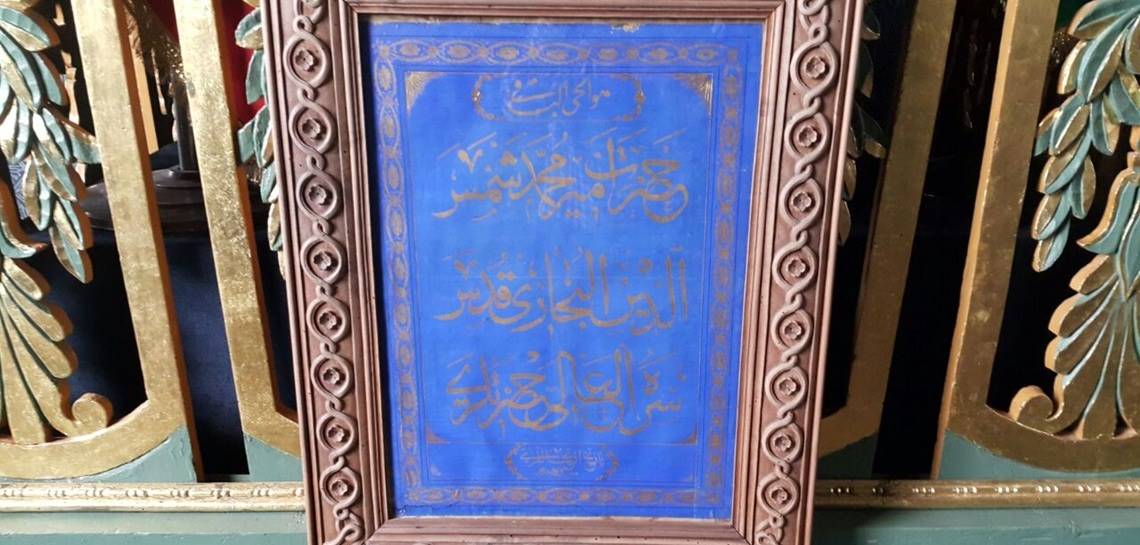 هو الحی الباقی
حضرت امیر محمد شمس
الدین البخاری قدس
سره العالی حضرتلری